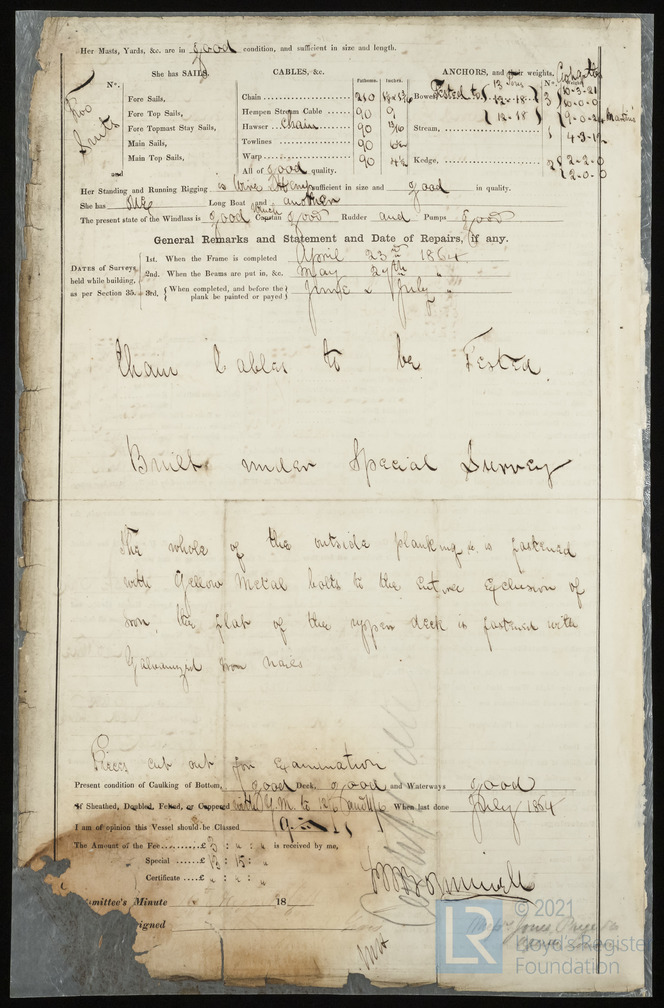 Her Masts, Yards, &c. are in good condition, and sufficient in size and length.
She has SAILS. CABLES, &c. ANCHORS, and their weights.
Nº. Fathoms. Inches. Nº.
Two Suits
Fore Sails,
Fore Top Sails,
Fore Topmast Stay Sails,
Main Sails,
Main Top Sails,
and
Chain 210
Hempen Stream Cable 90 9
Hawser chain 90
Towlines 90
Warp 90
All of good quality.
Bower Tested to 3 10-3-21
12-18 10-0-0
12-18 9-0-
Stream, 1 4-3-
Kedge, 2 2-2-0
2-0-0
Her Standing and Running Rigging is Wire & Hemp sufficient in size and good in quality.
She has one Long Boat and another
The present state of the Windlass is good Capstan good Rudder and Pumps good
General Remarks and Statement and Date of Repairs, if any.
DATES of Surveys held while building, as per Section 35.
1st. When the Frame is completed April 23rd 1864
2nd. When the Beams are put in, &c. May 27th "
3rd. { When completed, and before the plank be painted or payed } June & July "
Chain Cables to be Tested.
Built under Special Survey
The whole of the outside planking &c is fastened
with Yellow Metal bolts to the entire exclusion of
iron, the flat of the upper deck is fastened with
Galvanized iron nails
Pieces cut out for Examination
Present condition of Caulking of Bottom, good Deck, good and Waterways good
If Sheathed, Doubled, Felted, or Coppered with Y.M. to When last done July 1864
I am of opinion this Vessel should be Classed
The Amount of the Fee......£ 3 : " : " is received by me,
Special ......£ : 15 : "
Certificate ...£ " : " : "
mmittee's Minute 18
igned
LR
© 2021
Lloyd's Register
Foundation